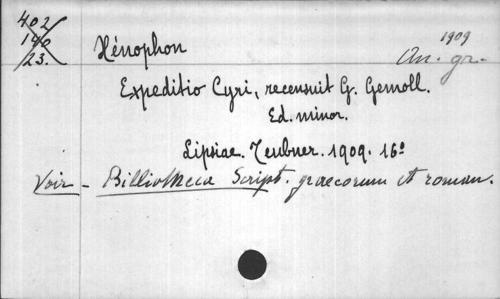 402
140
23.
1909
Xénophon
An. gr.
Expeditio Cyri, recensuit G. Gemoll.
Ed. minor.
Lipsiae. Teubner. 1909. 16º
Voir - Bibliotheca Script. graecorum et roman.